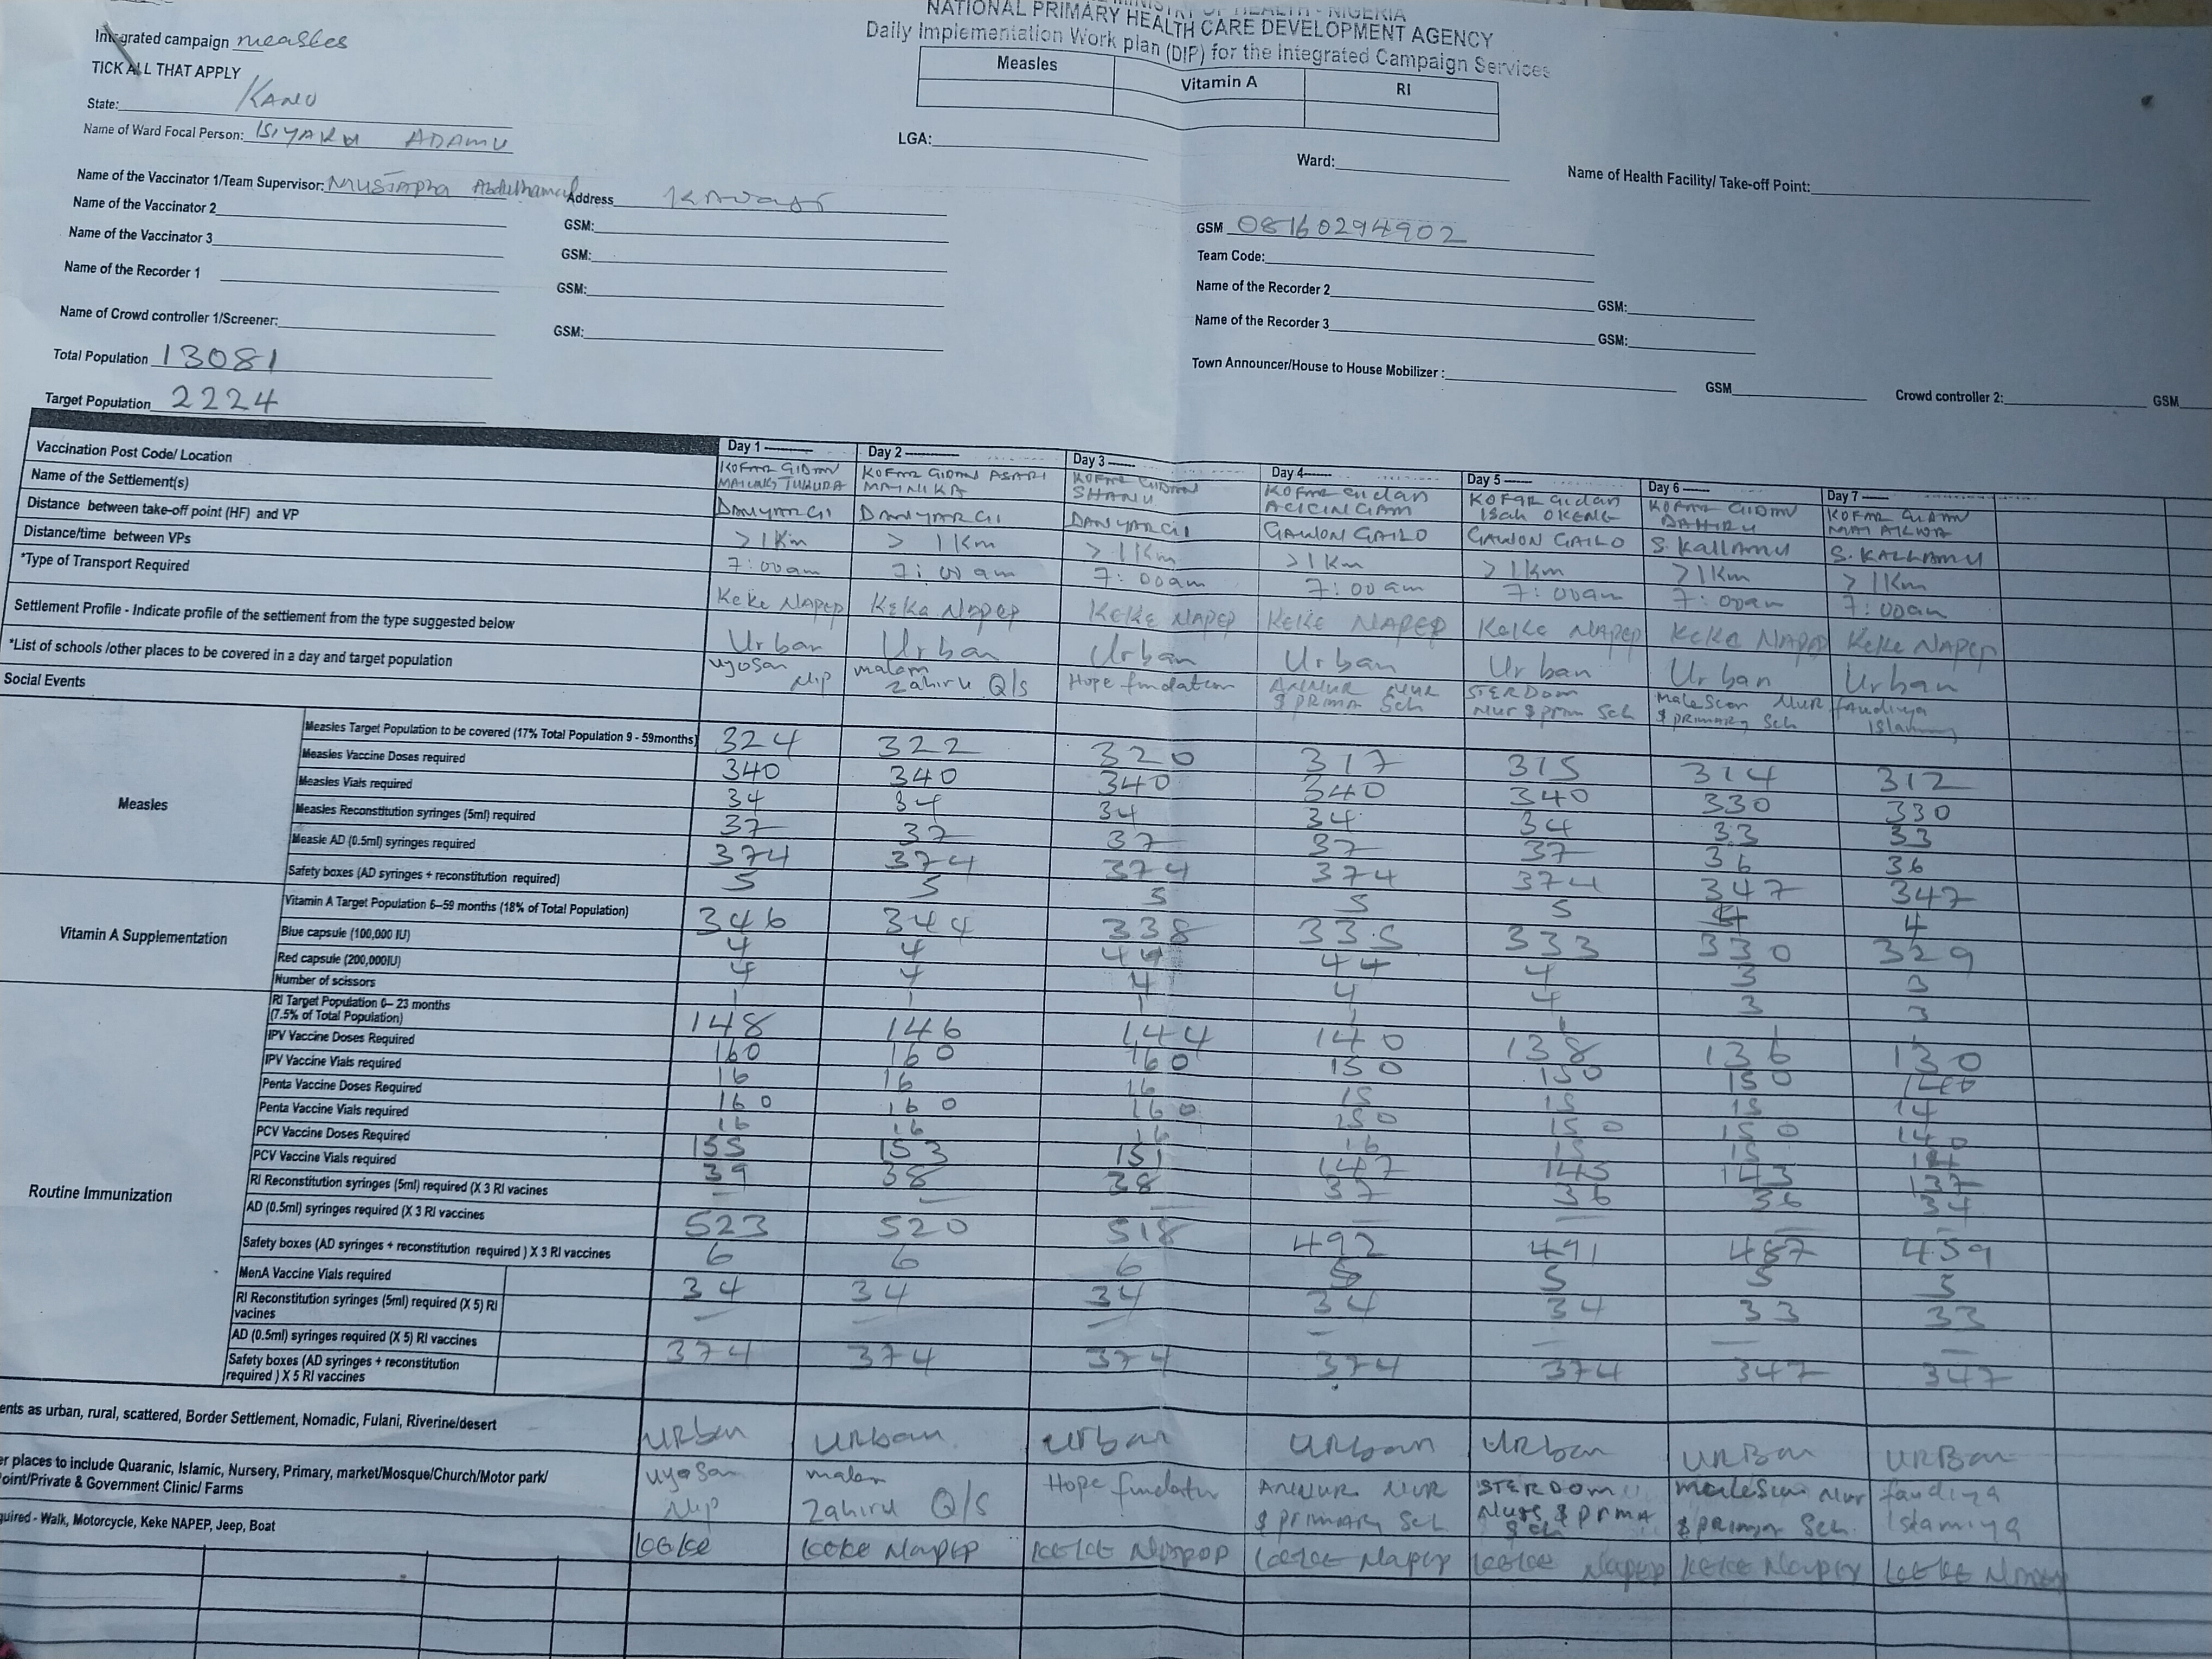 MINISTRY OF HEALTH - NIGERIA
NATIONAL PRIMARY HEALTH CARE DEVELOPMENT AGENCY
Daily Implementation Work plan (DIP) for the Integrated Campaign Services
Integrated campaign measles
TICK ALL THAT APPLY
Measles Vitamin A RI
State: KANO
Name of Ward Focal Person: ISIYAKU ADAMU
LGA: Ward: Name of Health Facility/ Take-off Point:
Name of the Vaccinator 1/Team Supervisor: Mustapha Abdulhamid Address GSM 08160294902
Name of the Vaccinator 2 GSM: Team Code:
Name of the Vaccinator 3 GSM: Name of the Recorder 2 GSM:
Name of the Recorder 1 GSM: Name of the Recorder 3 GSM:
Name of Crowd controller 1/Screener: GSM: Town Announcer/House to House Mobilizer : GSM Crowd controller 2: GSM
Total Population 13081
Target Population 2224
Day 1 Day 2 Day 3 Day 4 Day 5 Day 6 Day 7
Vaccination Post Code/ Location KOFAR GIDAN KOFAR GIDAN ASABI MAI NIKA KOFAR GIDAN SHANU KOFAR Gidan KOFAR Gidan Isah OKENE KOFAR GIDAN DAHIRU KOFAR GIDAN MAI
Name of the Settlement(s) DANYARGII DANYARGII DANYARGII GAWON GAILO GAWON GAILO S. KallAMU S. KALLAMU
Distance between take-off point (HF) and VP >1Km > 1Km >1Km >1Km >1Km >1Km >1Km
Distance/time between VPs 7:00am 7:00am 7:00am 7:00am 7:00am 7:00am 7:00am
*Type of Transport Required Keke NAPEP Keke NAPEP KEKE NAPEP KEKE NAPEP KeKe NAPEP KeKe NAPEP KeKe NAPEP
Settlement Profile - Indicate profile of the settlement from the type suggested below Urban Urban Urban Urban Urban Urban Urban
*List of schools /other places to be covered in a day and target population uyosan N/p malam Zahiru Q/S Hope fundation ANNUR NUR & PRIMA Sch STERDOM Nur & prim Sch NUR & PRIMARY Sch faudiya
Social Events
Measles
Measles Target Population to be covered (17% Total Population 9 - 59months) 324 322 320 317 315 314 312
Measles Vaccine Doses required 340 340 340 340 340 330 330
Measles Vials required 34 34 34 34 34 33 33
Measles Reconstitution syringes (5ml) required 37 37 37 37 37 36 36
Measle AD (0.5ml) syringes required 374 374 374 374 374 347 347
Safety boxes (AD syringes + reconstitution required) 5 5 5 5 5 4 4
Vitamin A Supplementation
Vitamin A Target Population 6–59 months (18% of Total Population) 346 344 338 335 333 330 329
Blue capsule (100,000 IU) 4 4 44 44 4 3 3
Red capsule (200,000IU) 4 4 4 4 4 3 3
Number of scissors 1 1 1 1 1 1 1
Routine Immunization
RI Target Population 0– 23 months (7.5% of Total Population) 148 146 144 140 138 136 130
IPV Vaccine Doses Required 160 160 160 150 150 150 140
IPV Vaccine Vials required 16 16 16 15 15 15 14
Penta Vaccine Doses Required 160 160 160 150 150 150 140
Penta Vaccine Vials required 16 16 16 16 15 15 14
PCV Vaccine Doses Required 155 153 151 147 145 143 137
PCV Vaccine Vials required 39 38 38 37 36 36 34
RI Reconstitution syringes (5ml) required (X 3 RI vacines – – – – – – –
AD (0.5ml) syringes required (X 3 RI vaccines 523 520 518 492 491 487 459
Safety boxes (AD syringes + reconstitution required ) X 3 RI vaccines 6 6 6 5 5 5 5
MenA Vaccine Vials required 34 34 34 34 34 33 33
RI Reconstitution syringes (5ml) required (X 5) RI vacines – – – – – – –
AD (0.5ml) syringes required (X 5) RI vaccines 374 374 374 374 374 347 347
Safety boxes (AD syringes + reconstitution required ) X 5 RI vaccines
ents as urban, rural, scattered, Border Settlement, Nomadic, Fulani, Riverine/desert URban URban Urban URban URban URBan URBan
er places to include Quaranic, Islamic, Nursery, Primary, market/Mosque/Church/Motor park/ uyosan N/p malam Zahiru Q/S Hope ANNUR NUR & PRIMARY Sch STERDOM Nurs & PRMA Sch Nur & primar Sch. faudiya Islamiya
oint/Private & Government Clinic/ Farms
quired - Walk, Motorcycle, Keke NAPEP, Jeep, Boat KEKE KEKE Napep KEKE KEKE Napep KEKE Napep KEKE Napep KEKE